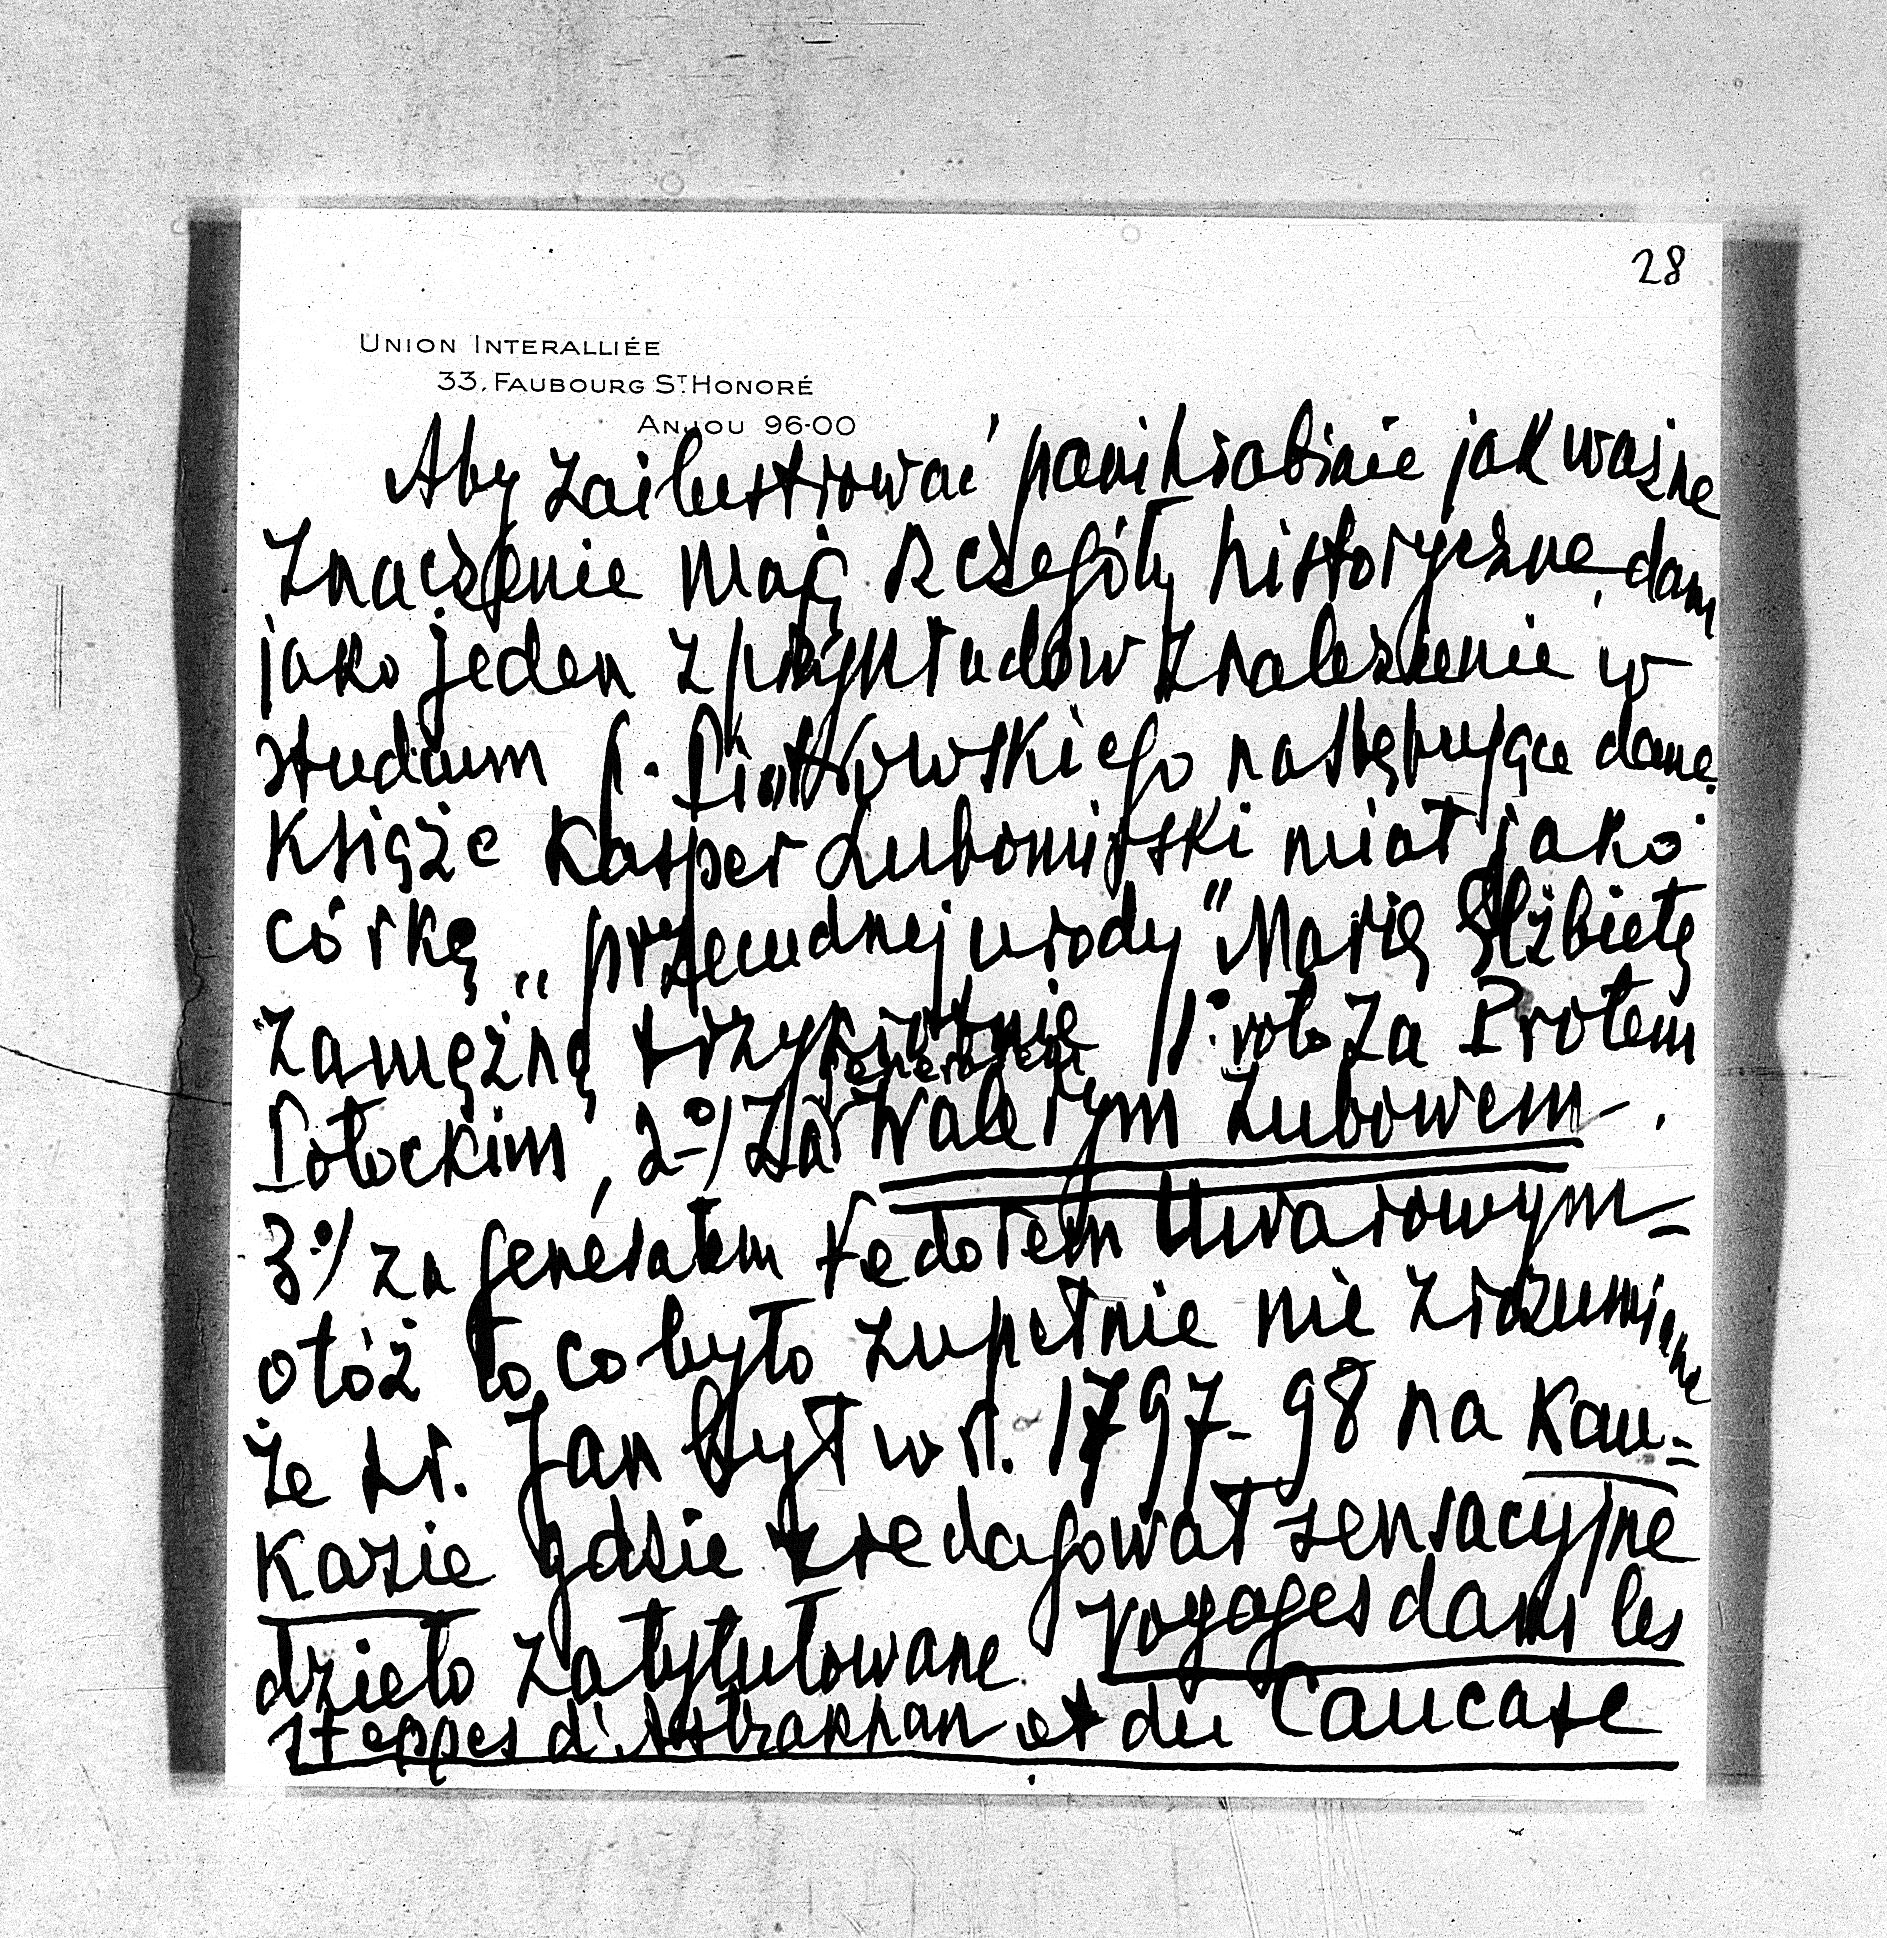 28
UNION INTERALLIÉE
33, FAUBOURG ST. HONORÉ
ANJOU 96-00
Aby zailustrować pani hrabinie jak ważne
znaczenie mają szczegóły historyczne, dam
jako jeden z przykładów znalezienie w
studium p. Piotrowskiego następujące dane.
Książe Kasper Lubomirski miał jako
córkę „przecudnej urody" Marię Elżbietę
zamężną trzykrotnie 1° voto za Protem
Potockim, 2°/ za generałem Walerym Zubowem.
3°/ za generałem Fedorem Uwarowym=
otóż to co było zupełnie nie zrozumiane
że hr. Jan był w r. 1797-98 na Kau=
kazie gdzie zredagował sensacyjne
dzieło zatytułowane voyages dans les
steppes d'Astrakhan et du Caucase